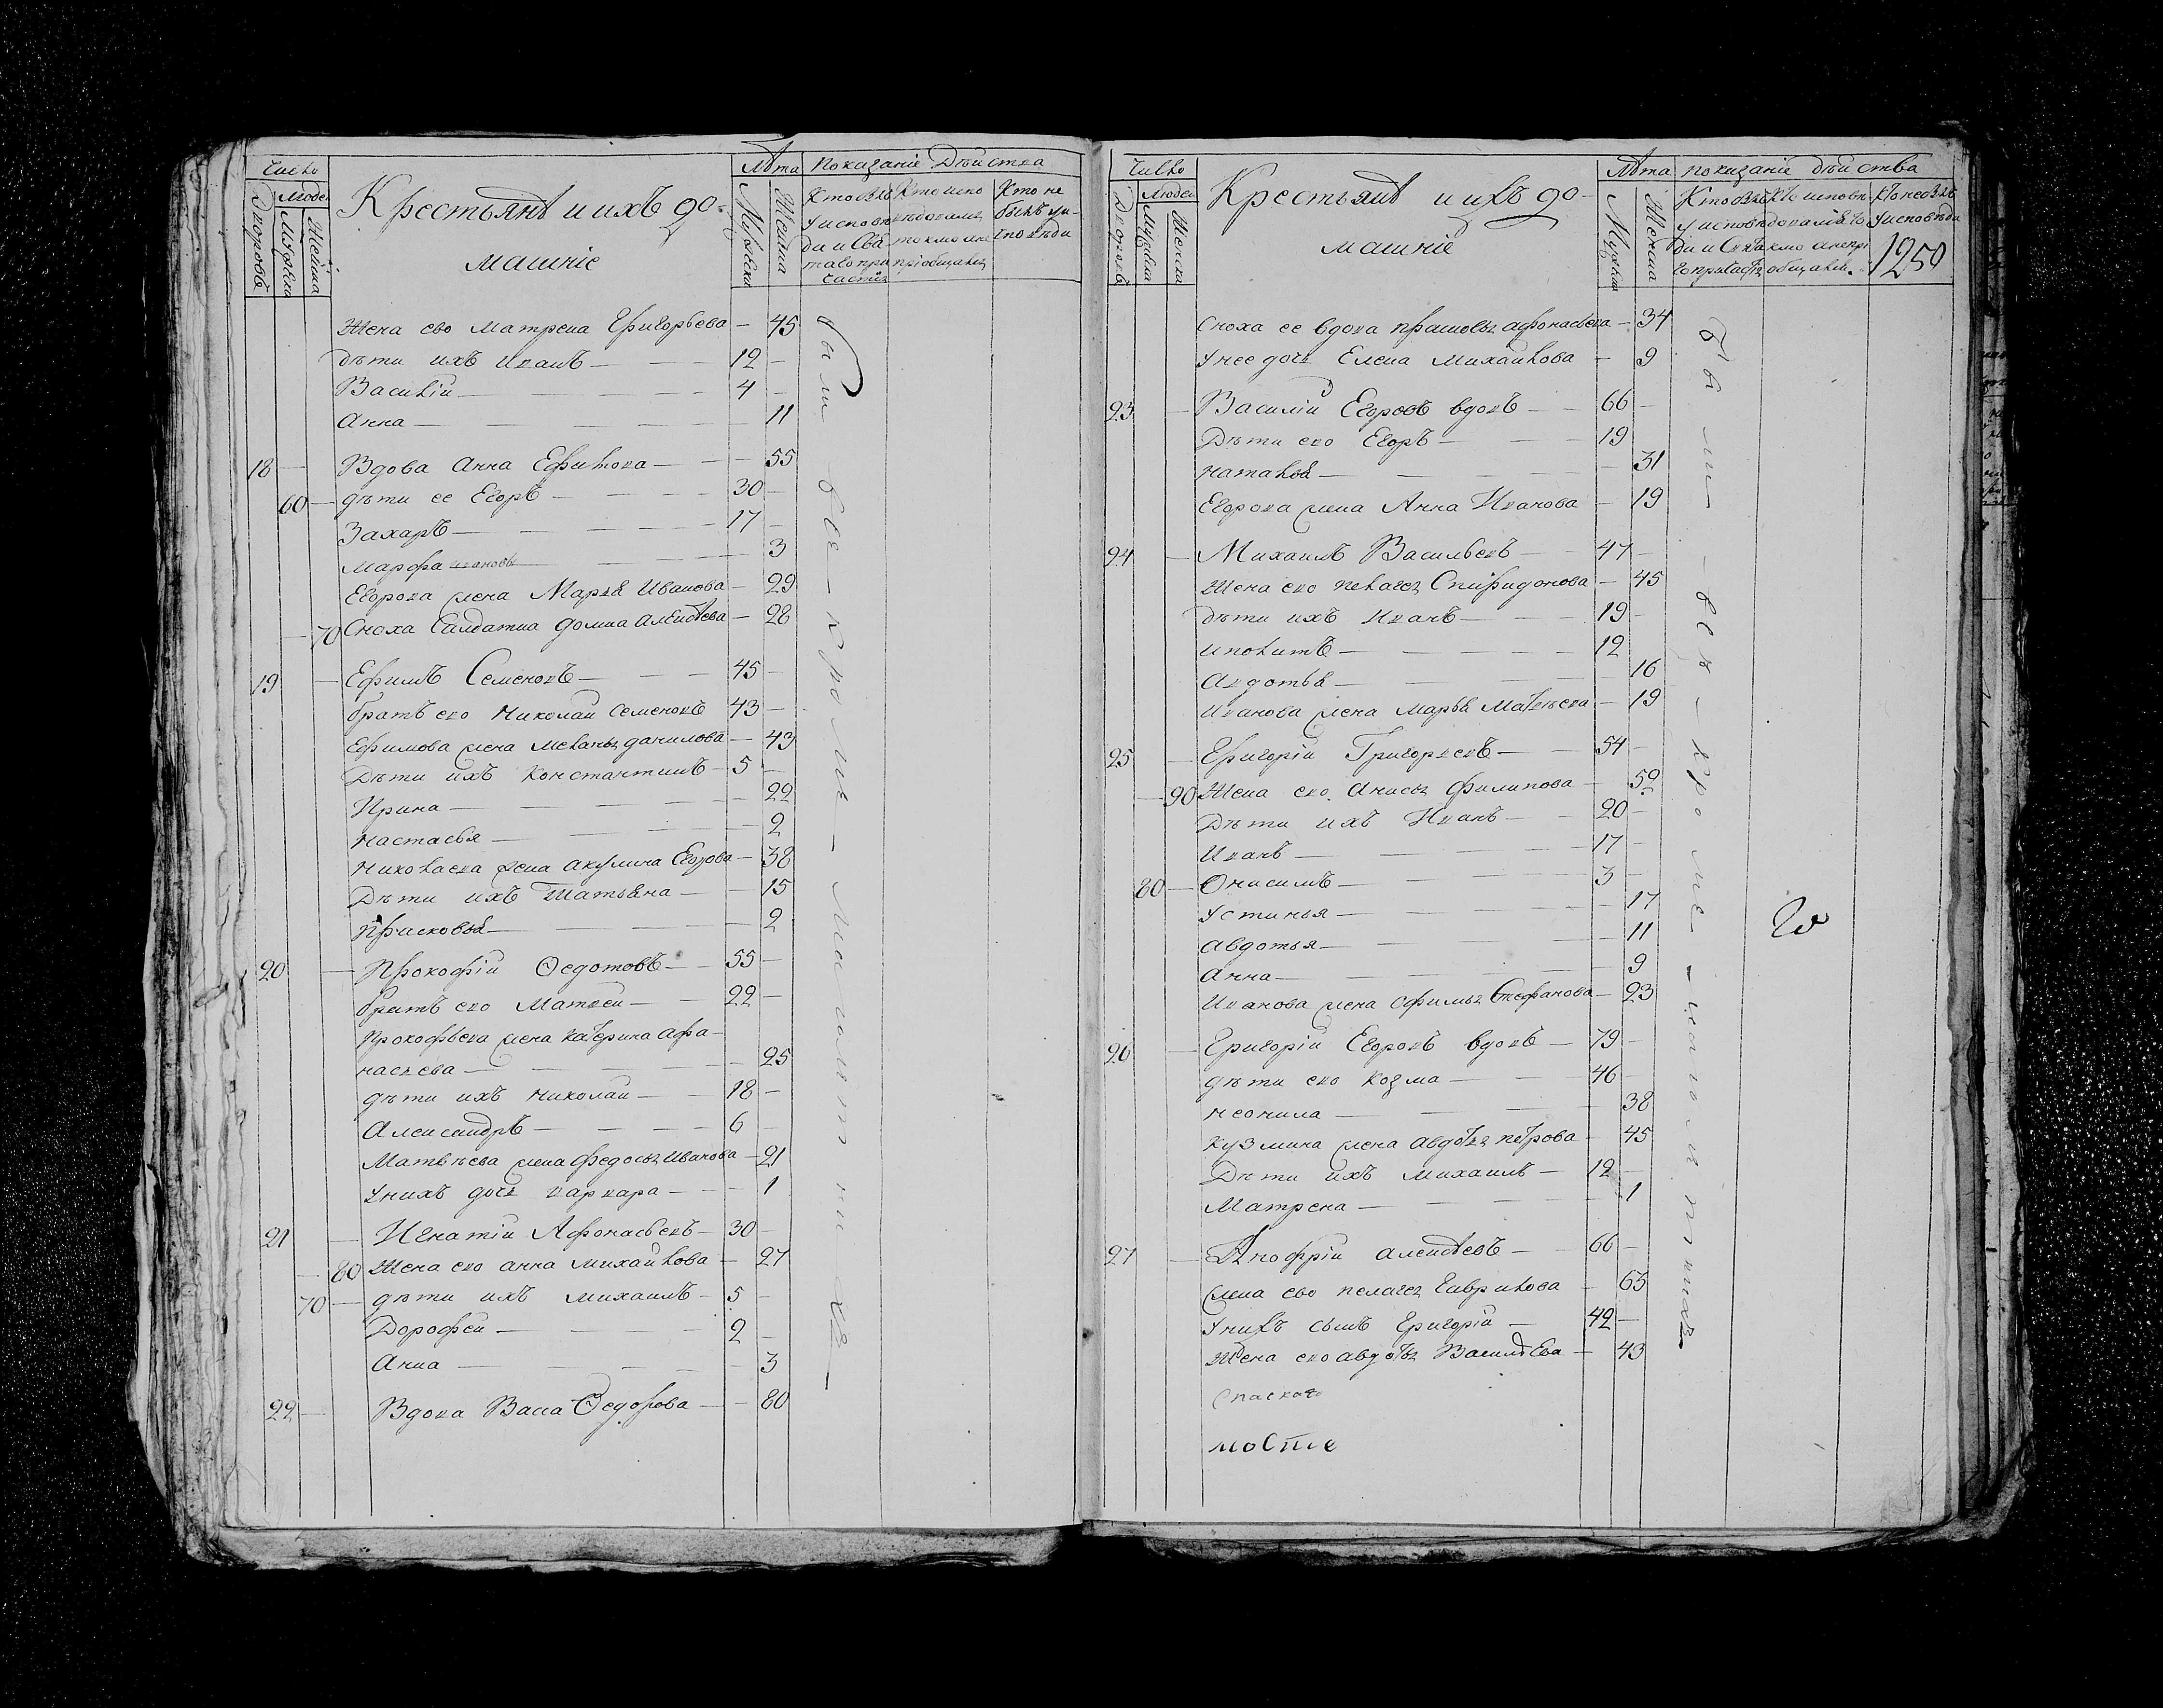 Число
Людей
Дворовъ
Мужска
Женска
Крестьянѣ и ихъ до-
машніе
Лѣта
Мужска
Женска
Показаніе Дѣйства
Кто былъ
у исповѣ
ди и Свя
таго при
частія
Кто испо
вѣдовался
токмо ане
пріобщался
Кто не
былъ у и-
сповѣди
Жена его Матрена Григорьева — 45
Дѣти ихъ Иванъ — 12 —
Василій — 4 —
Анна — 11
18 — Вдова Анна Ефимова — 55
60 — дѣти ее Егоръ — 30 —
Захаръ — 17 —
Марфа — 3
Егорова жена Марья Иванова — 29
70 Сноха Салдатка Домна Алексѣева — 28
19 — Ефимъ Семеновъ — 45 —
братъ его Николай Семеновъ 43 —
Ефимова жена Меланья данилова — 43
Дѣти ихъ Константинъ — 5 —
Ирина — 22
Настасья — 2
Николаева жена Акулина Егорова — 38
Дѣти ихъ Татьяна — 15
Прасковья — 2
20 — Прокофій Ѳедотовъ — 55 —
братъ его Матвей — 22 —
Прокофьева жена Катерина Афа-
насьева — 25
дѣти ихъ Николай — 18 —
Александръ — 6 —
Матвѣева жена Федосья Иванова — 21
У нихъ дочь Варвара — 1
21 — Игнатій Афонасьевъ — 30 —
80 Жена его Анна Михайлова — 27
70 — дѣти ихъ Михаилъ — 5 —
Дорофей — 2 —
Анна — 3
22 — Вдова Васа Ѳедорова — 80
были все — кроме — малолетнихъ —
Число
Людей
Дворовъ
Мужска
Женска
Крестьянѣ и ихъ до-
машніе
Лѣта
Мужска
Женска
показаніе дѣйства
1250
Сноха ее вдова прасковья афонасьева — 34
У нее дочь Елена Михайлова — 9
23 — Василій Егоровъ вдовъ — 66 —
Дѣти его Егоръ — 19
Наталья — 31
Егорова жена Анна Иванова — 19
24 — Михаилъ Васильевъ — 47 —
Жена его Пелагея Спиридонова — 45
дѣти ихъ Иванъ — 19 —
Иполитъ — 12
Авдотья — 16
Иванова жена Марья Матвѣева — 19
25 — Григорій Григорьевъ — 54 —
90 Жена его Анисья Филипова — 52
Дѣти ихъ Иванъ — 20 —
Иванъ — 17 —
80 — Онисимъ — 3 —
Устинья — 17
Авдотья — 11
Анна — 9
Иванова жена Офимья Стефанова — 23
26 — Григорій Егоровъ вдовъ — 79 —
дѣти его Козма — 46 —
Неонила — 38
Кузмина жена Авдотья Петрова — 45
Дѣти ихъ Михаилъ — 12 —
Матрена — 1
27 — Анофрій Алексѣевъ — 66 —
Жена его Пелагея Гаврилова — 63
У нихъ сынъ Григорій — 42 —
Жена его Авдотья Васильева — 43
Спаскаго
были — все — кроме — малолетнихъ